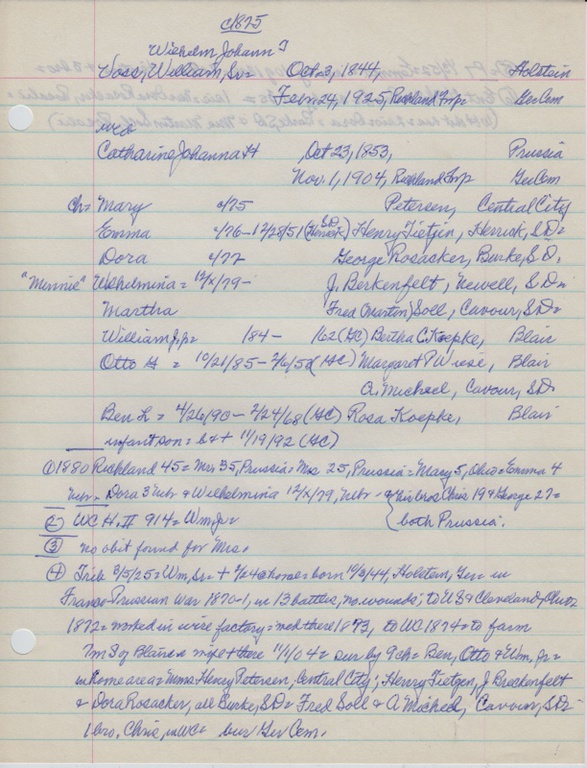 c/1875
Wilhelm Johann J
Voss, William, Sr = Oct 23, 1844, Holstein
Feb 24, 1925, Richland Twp = Ger Cem
w =
Catharine Johanna H Oct 23, 1853, Prussia
Nov. 1, 1904, Richland Twp Ger Cem
Ch = Mary c/75 Petersen, Central City
Emma c/76 - 12/28/51 (Herrick SD) Henry Tietjen, Herrick, S.D. =
Dora c/77 George Rosacker, Burke, S.D.
"Minnie" Wilhelmina = 12/x/79 - J. Berkenfelt, Newell, S.D. =
Martha Fred (Martin) Soll, Cavour, S.D. =
William J, Jr 1/84 - 1/62 (GC) Bertha C. Koepke, Blair
Otto H = 10/21/85 - 2/6/58 (GC) Margaret P Wiese, Blair
A. Michael, Cavour, S.D.
Ben L = 4/26/90 - 2/24/68 (GC) Rosa Koepke, Blair
infant son = b & + 11/19/92 (GC)
① 1880 Richland 45 = Mrs 25, Prussia = Mary 5, Ohio = Emma 4
Nebr = Dora 3 Nebr & Wilhelmina 12/x/79, Nebr - & his bro, Chris 19 & George 27 =
② WCH, II 914 = Wm, Jr = both Prussia.
③ no obit found for Mrs.
④ Trib 3/5/25 = Wm, Sr = + 2/24 @ home = born 10/3/44, Holstein, Ger = in
Franco-Prussian War 1870-1, in 13 battles, no wounds; to US & Cleveland, Ohio
1872 = worked in wire factory = wed there 1873, to WC 1874 = to farm
7m S of Blair = wife + there 11/1/04 = sur by 9 ch = Ben, Otto & Wm, Jr =
in home area = Mmes Henry Petersen, Central City; Henry Tietgen, J Breckenfelt
& Dora Rosacker, all Burke, SD = Fred Soll & A Michael, Cavour, SD =
1 bro, Chris, in WC = bur Ger Cem.